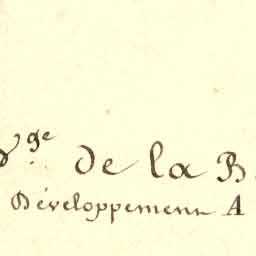 de la B
Développement A